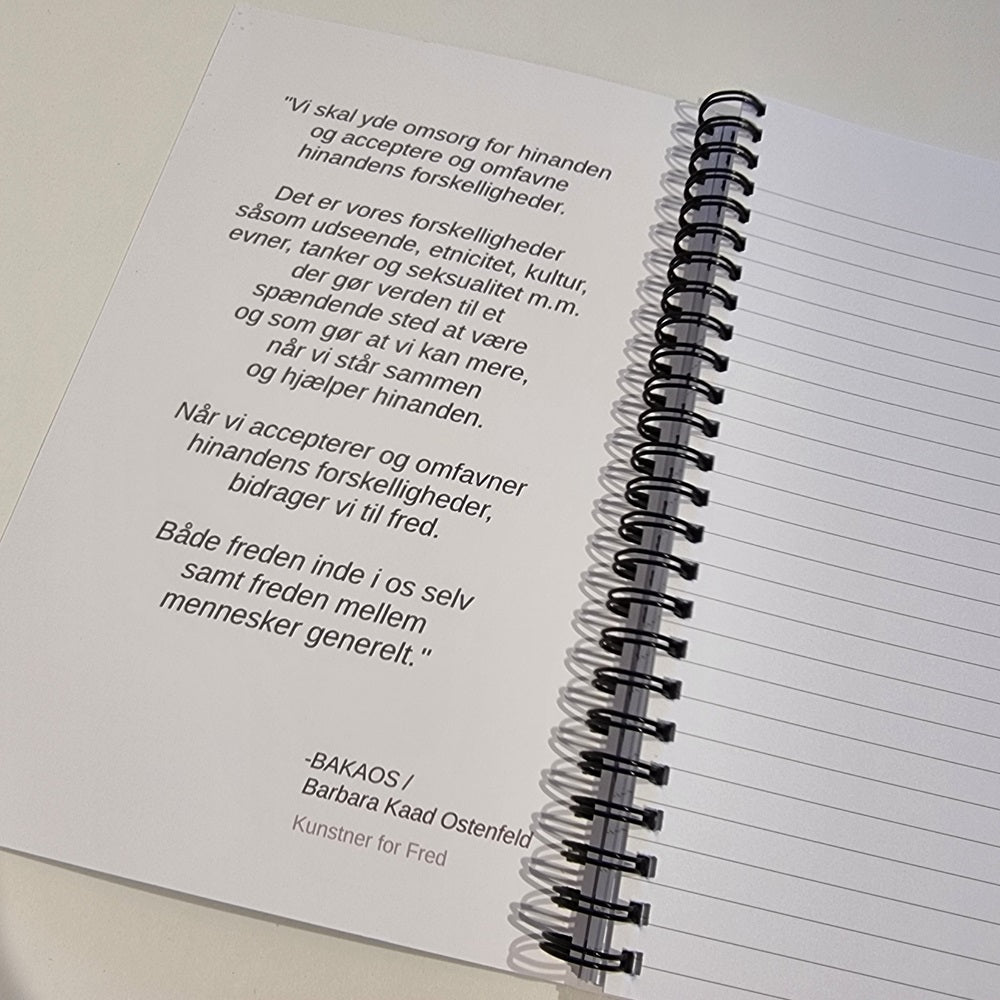 "Vi skal yde omsorg for hinanden
og acceptere og omfavne
hinandens forskelligheder.
Det er vores forskelligheder
såsom udseende, etnicitet, kultur,
evner, tanker og seksualitet m.m.
der gør verden til et
spændende sted at være
og som gør at vi kan mere,
når vi står sammen
og hjælper hinanden.
Når vi accepterer og omfavner
hinandens forskelligheder,
bidrager vi til fred.
Både freden inde i os selv
samt freden mellem
mennesker generelt."
-BAKAOS /
Barbara Kaad Ostenfeld
Kunstner for Fred